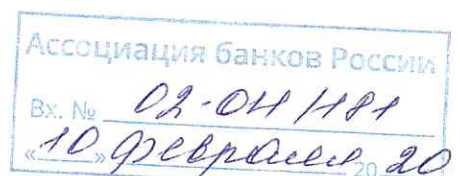 Ассоциация банков России
Вх. № 02-ОН/181
«10» февраля 2020